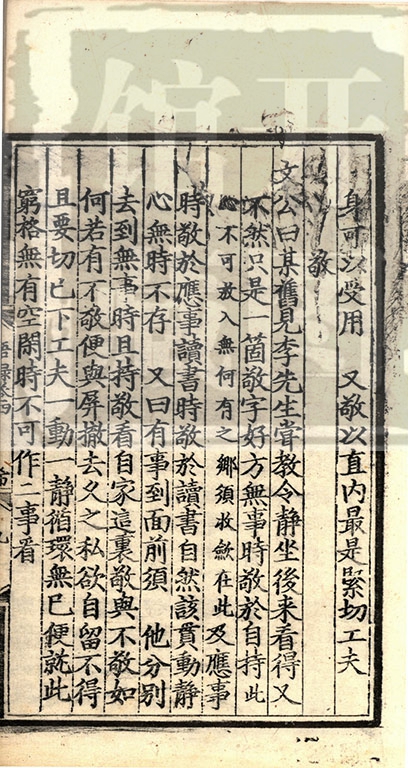 身可以受用　又敬以直内最是緊切工夫
敬
文公曰某舊見李先生嘗教令靜坐後来看得又
不然只是一箇敬字好方無事時敬於自持此
心不可放入無何有之鄉須收歛在此及應事
時敬於應事讀書時敬於讀書自然該貫動靜
心無時不存　又曰有事到面前須　他分别
去到無事時且持敬看自家這裏敬與不敬如
何若有不敬便與屏撤去久之私欲自留不得
且要切已下工夫一動一静循環無已便就此
窮格無有空閑時不可作二事看
語錄卷四